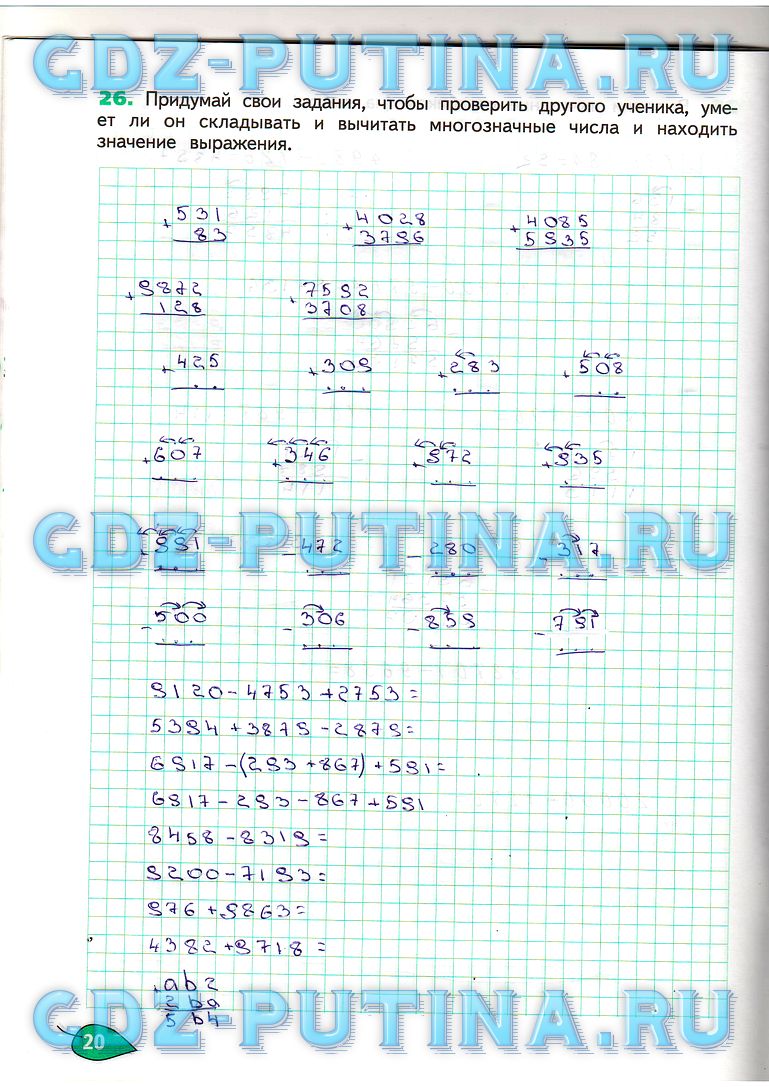 GDZ-PUTINA.RU
26. Придумай свои задания, чтобы проверить другого ученика, уме-
ет ли он складывать и вычитать многозначные числа и находить
значение выражения.
+531 +4028 +4085
83 3796 5935
+9872 +7592
128 3708
+425 +309 +283 +508
... ... ... ..
+607 +346 +972 +935
... ... ... ...
GDZ-PUTINA.RU
+991 -472 -280 -317
... ... ... ...
-500 -306 -859 -791
... ... ... ...
9120-4753+2753=
5394+3879-2879=
6917-(293+867)+591=
6917-293-867+591
8458-8319=
9200-7193=
976+9863=
4382+9718=
+ab2
2ba
5b4
GDZ-PUTINA.RU
20